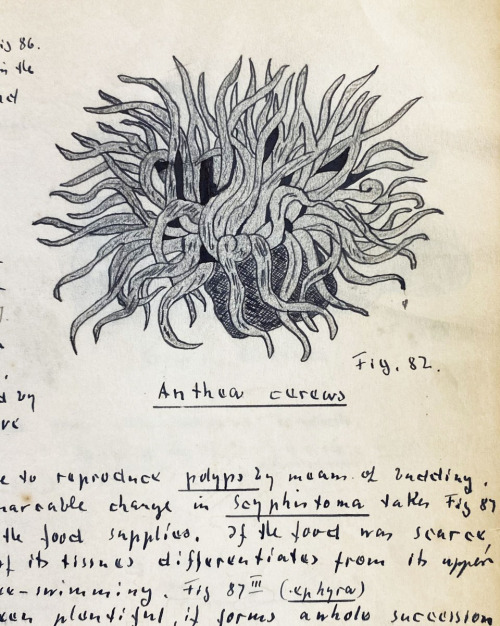 ig 86.
in the
Fig. 82.
Anthea cereus
d by
ve
e to reproduce polyps by means of budding.
markable change in Scyphistoma takes Fig 87
the food supplies. If the food was scarce
of its tissues differentiates from its upper
ee-swimming. Fig 87 III (ephyra)
plentiful, it forms a whole succession